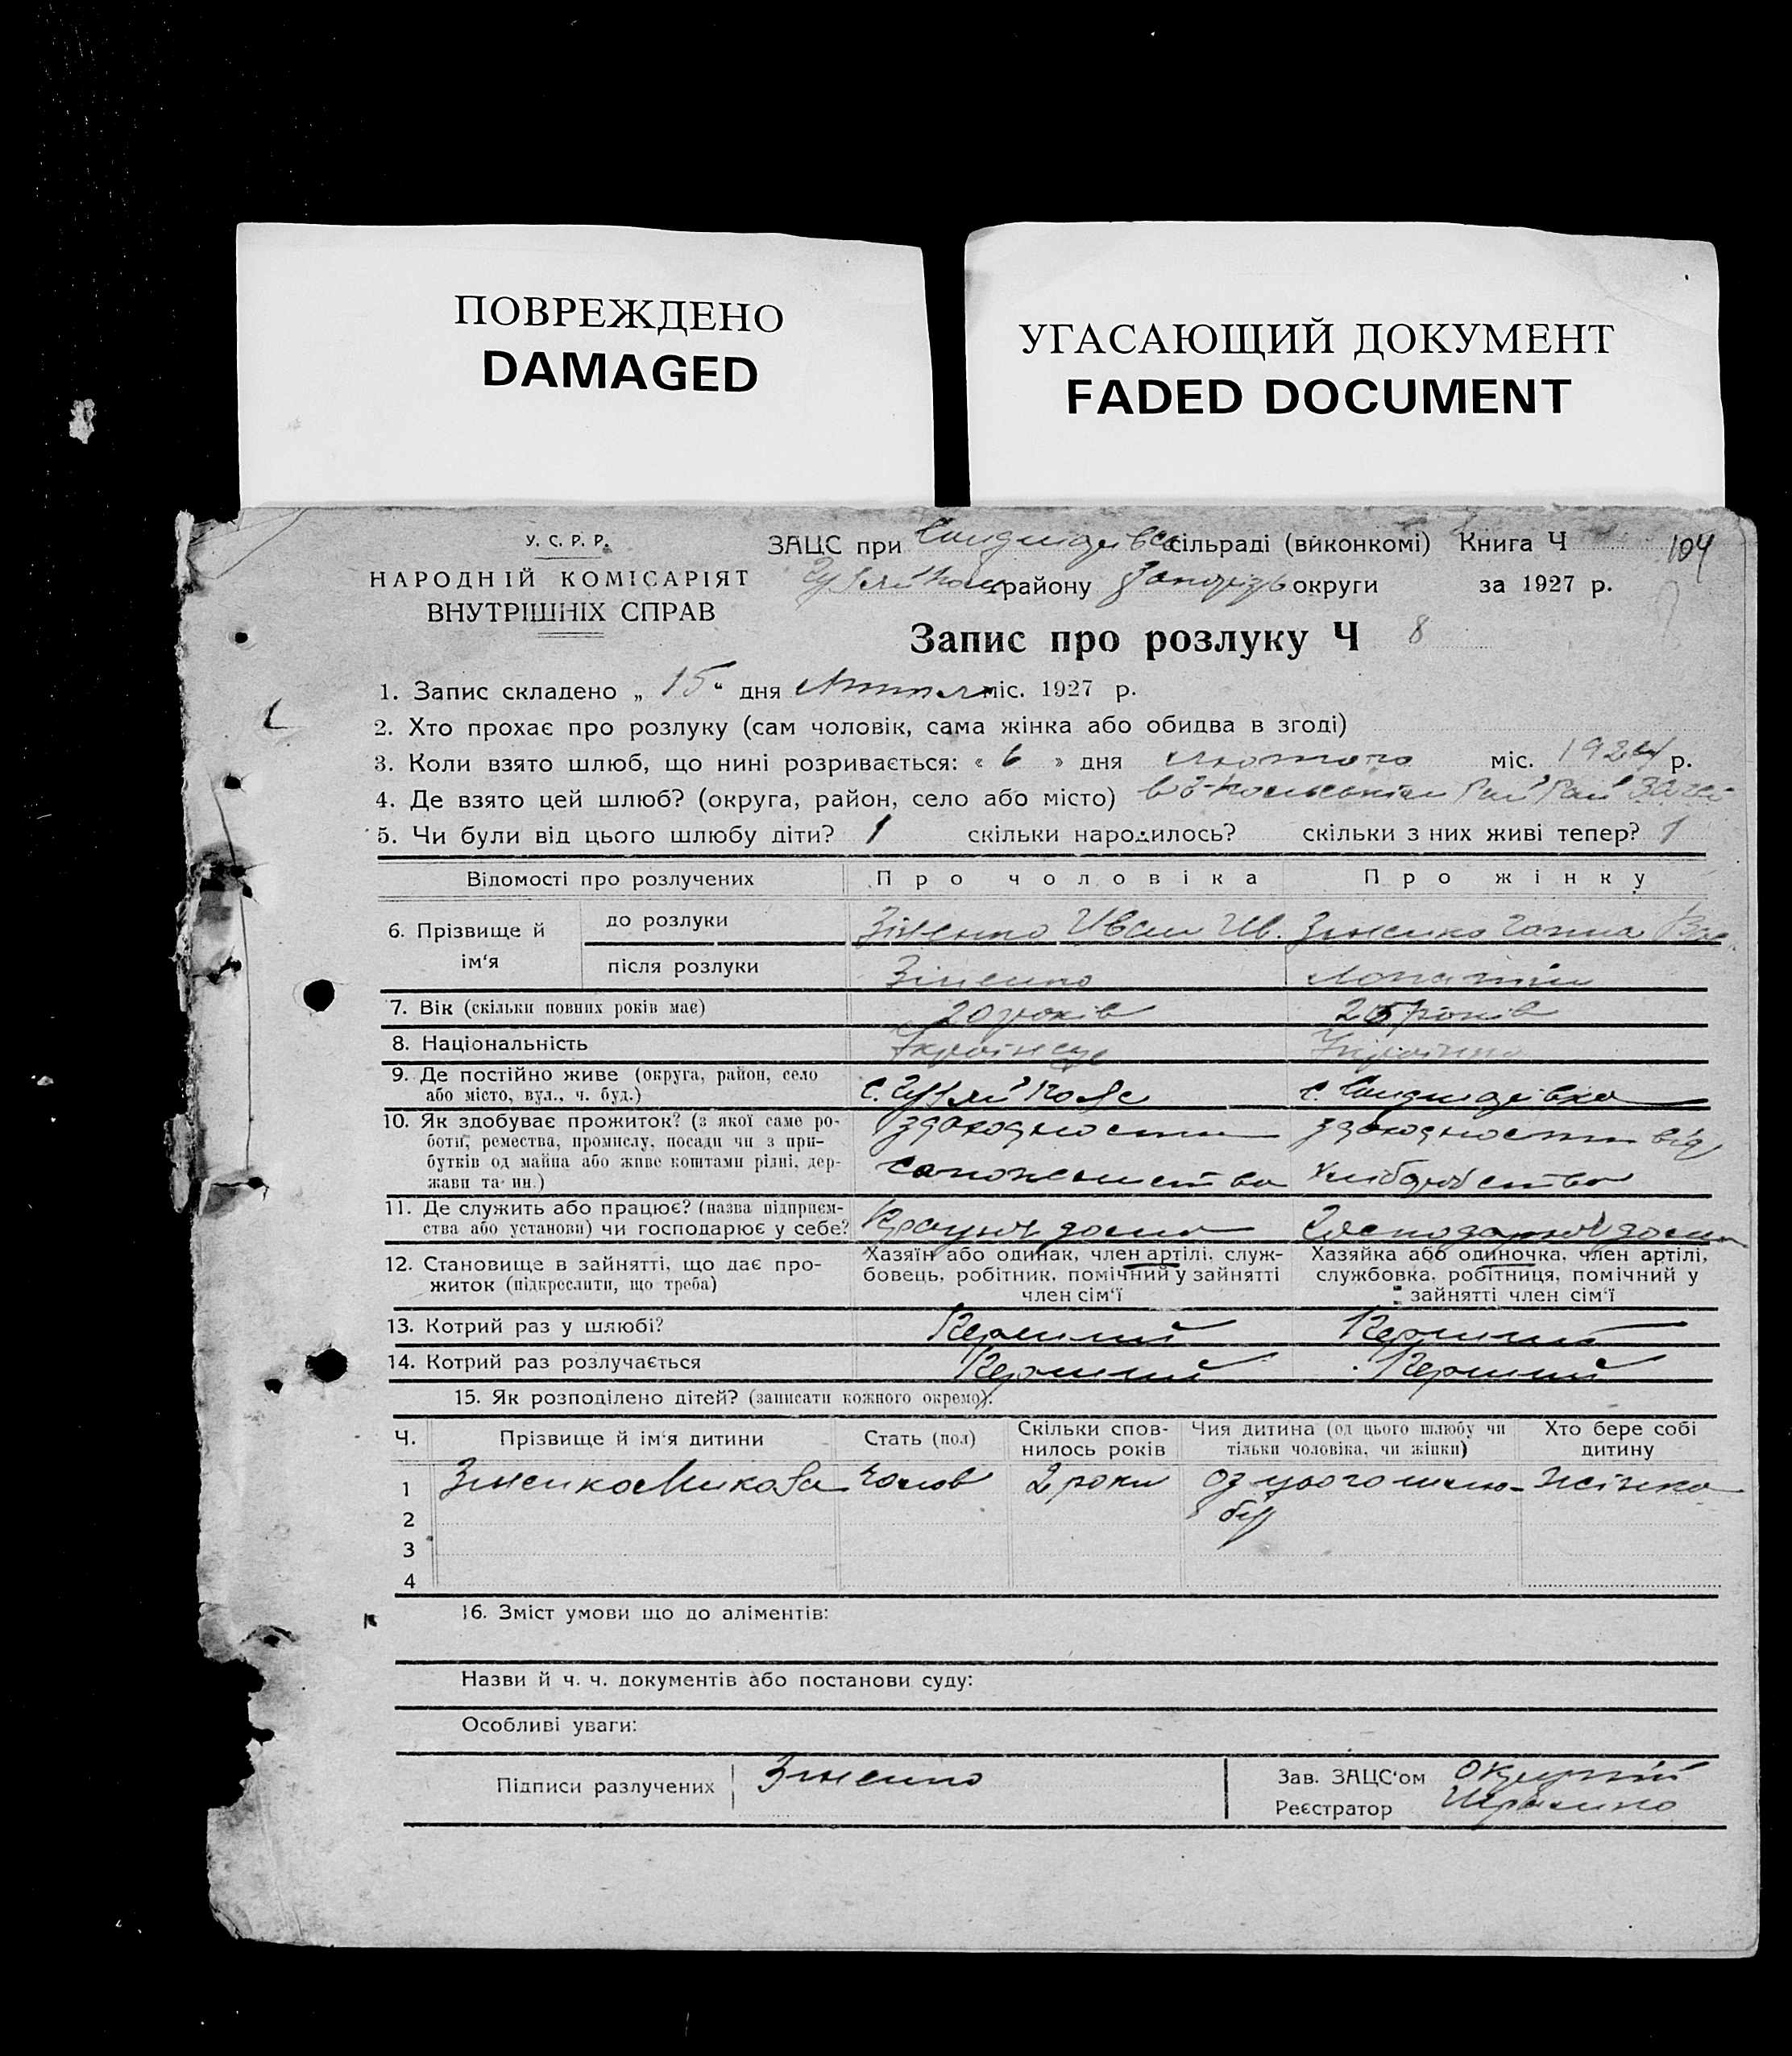 ПОВРЕЖДЕНО
DAMAGED
УГАСАЮЩИЙ ДОКУМЕНТ
FADED DOCUMENT
У. С. Р. Р.
НАРОДНІЙ КОМІСАРІЯТ
ВНУТРІШНІХ СПРАВ
ЗАЦС при сільраді (виконкомі) Книга Ч 104
району округи за 1927 р.
Запис про розлуку Ч 8
1. Запис складено „ 15 " дня міс. 1927 р.
2. Хто прохає про розлуку (сам чоловік, сама жінка або обидва в згоді)
3. Коли взято шлюб, що нині розривається: « 6 » дня лютого міс. 1924 р.
4. Де взято цей шлюб? (округа, район, село або місто)
5. Чи були від цього шлюбу діти? 1 скільки народилось? скільки з них живі тепер? 1
Відомості про розлучених Про чоловіка Про жінку
6. Прізвище й ім'я
до розлуки Зіненко Иван Ив. Зіненко Ганна Вас.
після розлуки Зіненко
7. Вік (скільки повних років має) 20 років 25 років
8. Національність Українець Українка
9. Де постійно живе (округа, район, село або місто, вул., ч. буд.) с. Гуляй Поле с.
10. Як здобуває прожиток? (з якої саме роботи, ремества, промислу, посади чи з прибутків од майна або живе коштами рідні, держави та ин.) від хліборобства
11. Де служить або працює? (назва підприємства або установи) чи господарює у себе? Працює дома Господарює дома
12. Становище в зайнятті, що дає прожиток (підкреслити, що треба)
Хазяїн або одинак, член артілі, службовець, робітник, помічний у зайнятті член сім'ї
Хазяйка або одиночка, член артілі, службовка, робітниця, помічний у зайнятті член сім'ї
13. Котрий раз у шлюбі? Перший Перший
14. Котрий раз розлучається Перший Перший
15. Як розподілено дітей? (записати кожного окремо).
Ч. Прізвище й ім'я дитини Стать (пол) Скільки сповнилось років Чия дитина (од цього шлюбу чи тільки чоловіка, чи жінки) Хто бере собі дитину
1 Зіненко Микола чолов 2 роки од цього шлюбу жінка
2
3
4
16. Зміст умови що до аліментів:
Назви й ч. ч. документів або постанови суду:
Особливі уваги:
Підписи разлучених Зіненко
Зав. ЗАЦС'ом
Реєстратор